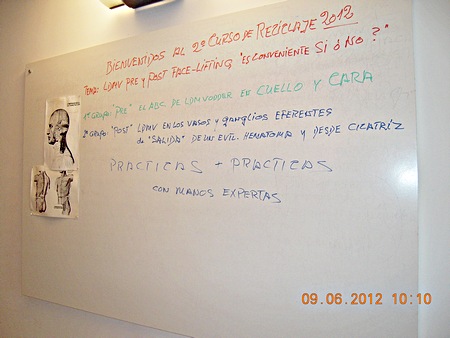 BIENVENIDOS AL 2º CURSO DE RECICLAJE 2012
TEMA: LDMV PRE y POST FACE-LIFTING "ES CONVENIENTE SI ó NO?"
1º GRUPO: "PRE" EL ABC DE LDM VODDER EN CUELLO Y CARA
2º GRUPO: "POST" LDMV EN LOS VASOS y GANGLIOS EFERENTES
de "SALIDA" DE UN EVTL. HEMATOMA Y DESDE CICATRIZ
PRACTICAS + PRACTICAS
CON MANOS EXPERTAS
09.06.2012 10:10